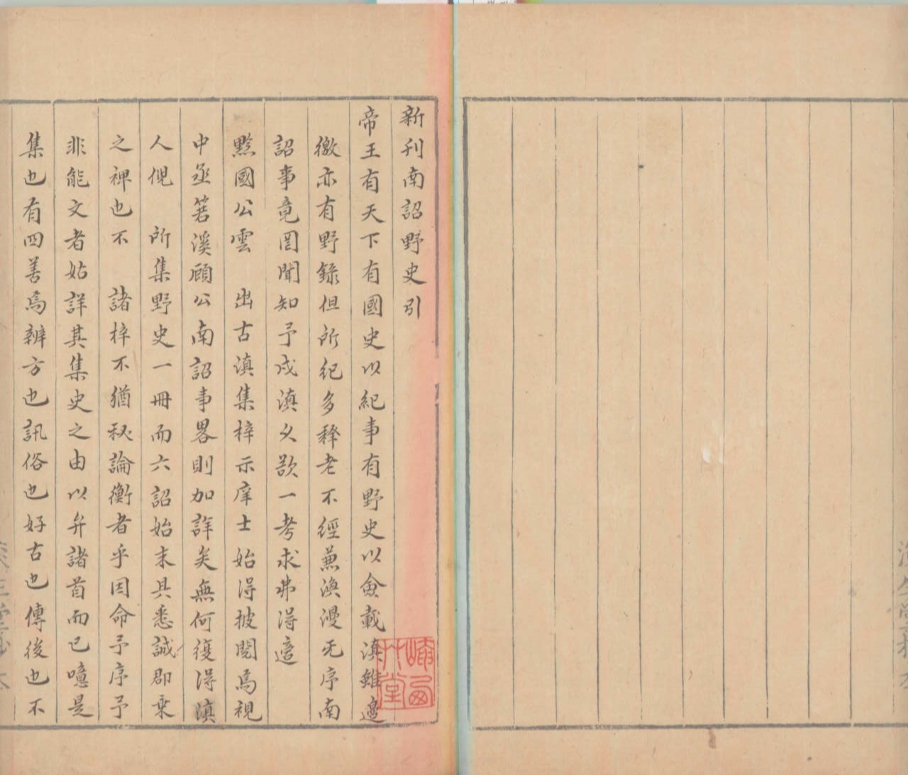 新刊南詔野史引
帝王有天下有國史以紀事有野史以僉載滇雖邊
徼亦有野錄但所紀多釋老不經兼渙漫无序南
詔事竟罔聞知予戍滇久欲一考求弗得適
黔國公雲 出古滇集梓示庠士始得披閱焉視
中丞箬溪顧公南詔事畧則加詳矣無何復得滇
人倪 所集野史一冊而六詔始末具悉誠郡乘
之裨也不 諸梓不猶秘論衡者乎因命予序予
非能文者姑詳其集史之由以弁諸首而已噫是
集也有四善焉辨方也訊俗也好古也傳後也不